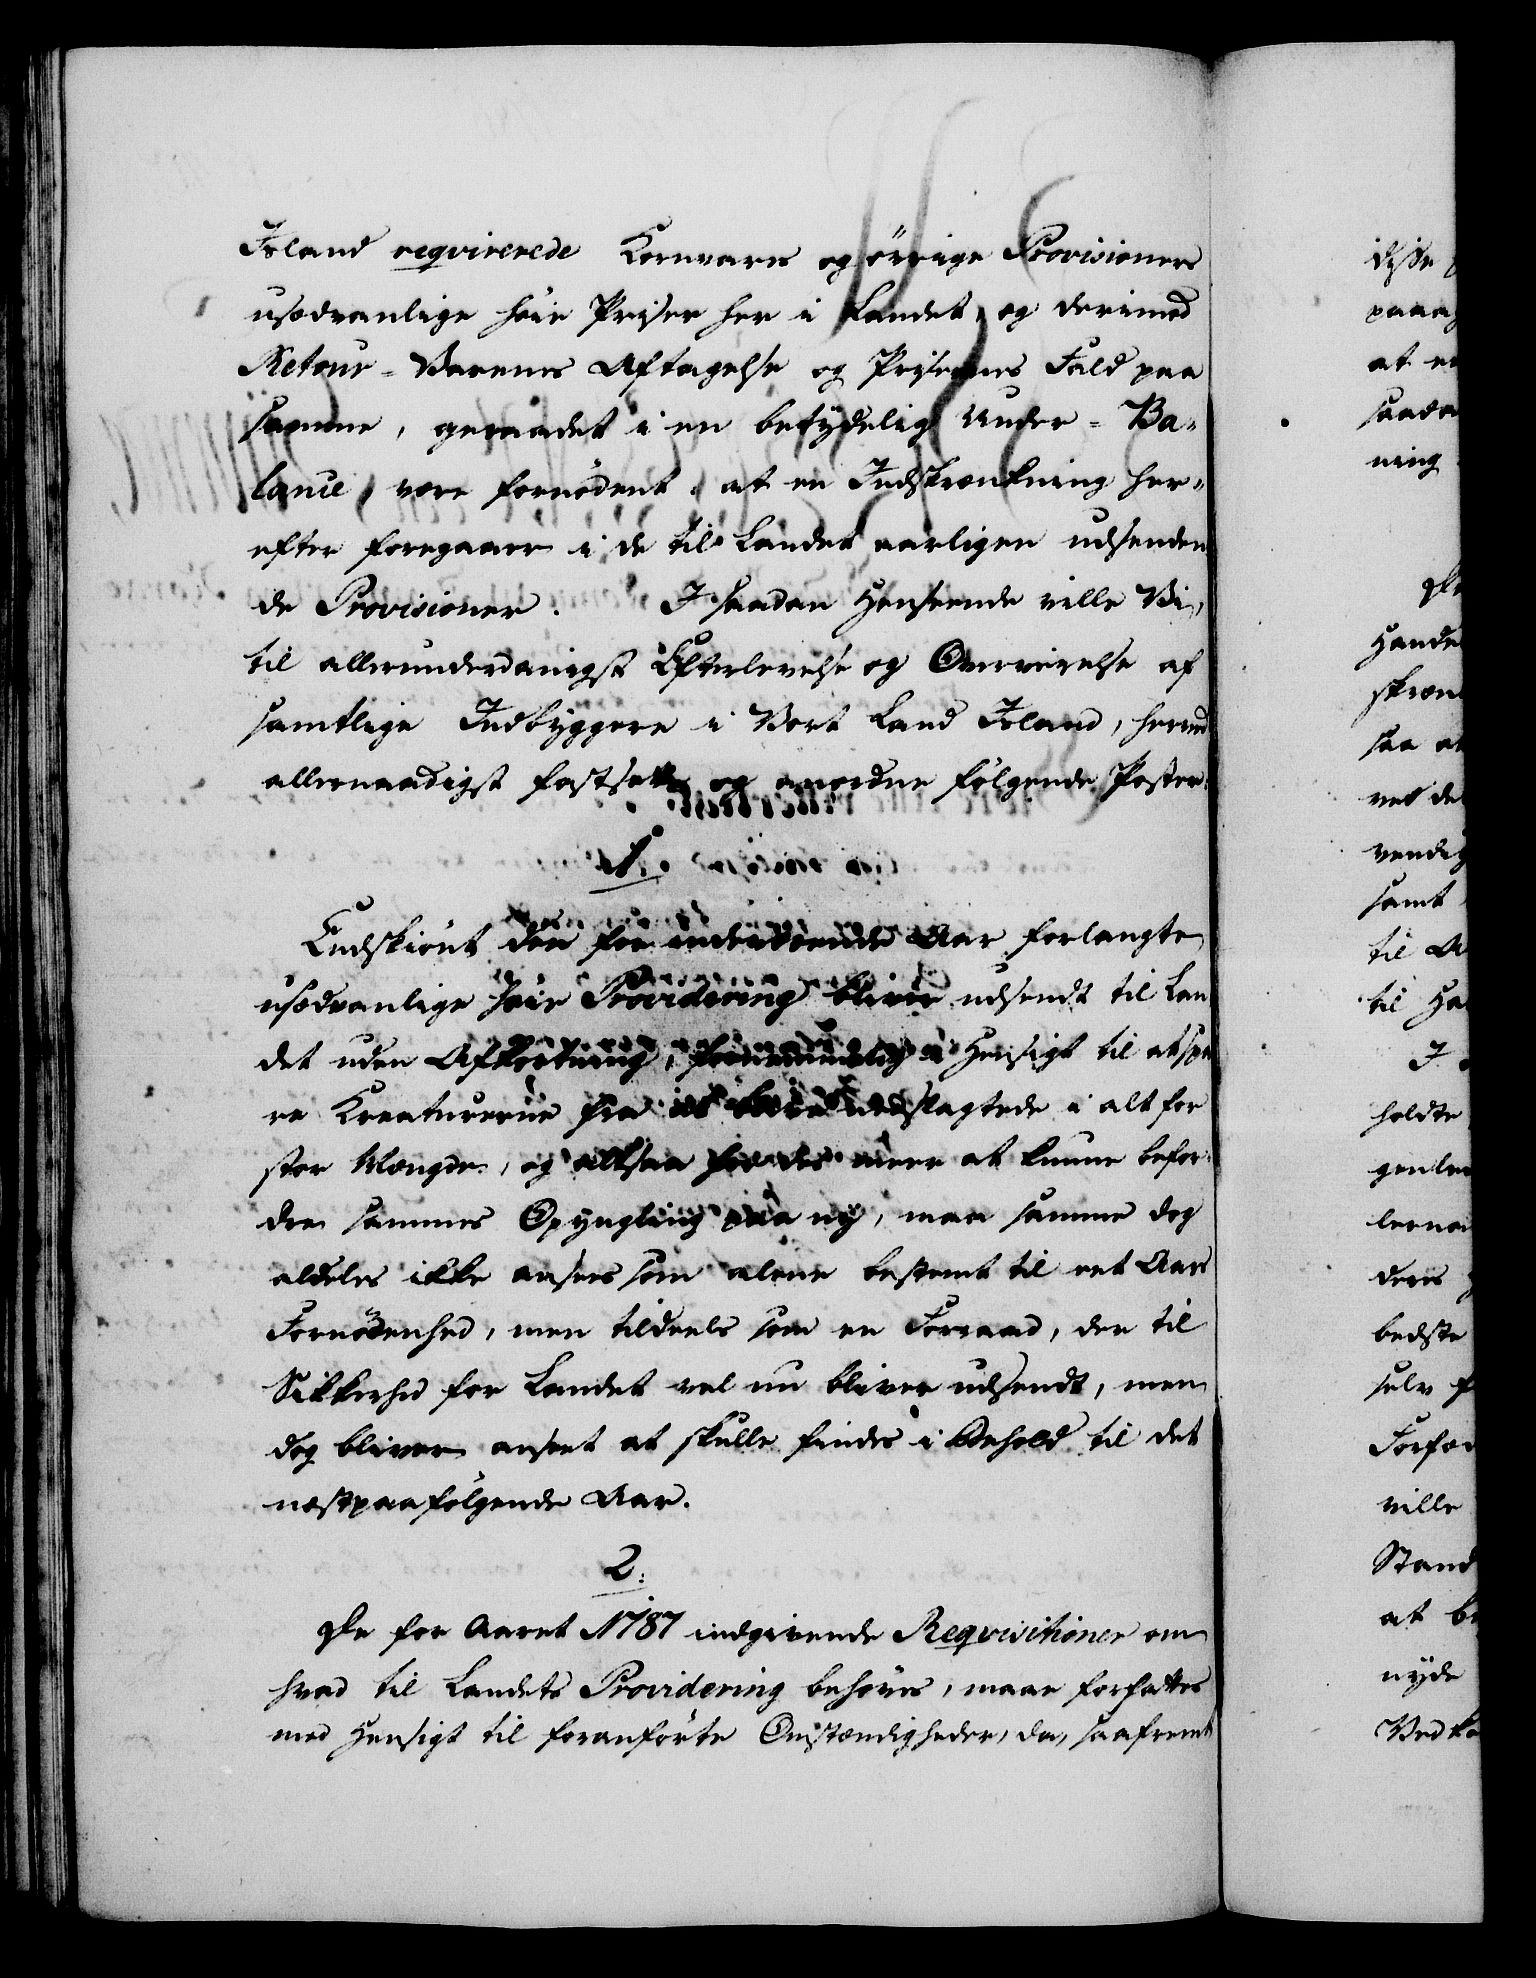 Island reqvirerede Kornvares og övrige Provisioners
usædvanlige høie Priser her i Landet, og derimod
Retour-Varenes Aftagelse og Prisernes Fald paa
samme, geraadet i en betydelig Under-Ba-
lance, være fornødent, at en Indskrænkning her-
efter foregaaer i de til Landet aarligen udsenden
de Provisioner. I saadan Henseende ville Vi,
til allerunderdanigst Efterlevelse og Overværelse af
samtlige Indbyggere i Vort Land Island, herved
allernaadigst fastsætte og anordne følgende Poster:
1.
Endskiønt den for indeværende Aar forlangte
usædvanlige høie Providering bliver udsendt til Lan
det uden Afkortning, fornemmelig i Hensigt til at spa
re Kreaturerne fra at blive nedslagtede i alt for
stor Mængde, og altsaa for des meere at kunne befor-
dre sammes Opyngling paa ny, maa samme dog
aldeles ikke ansees som alene bestemt til eet Aars
Fornødenhed, men tildeels som en Forraad, der til
Sikkerhed for Landet vel nu bliver udsendt, men
dog bliver anseet at skulle findes i Behold til det
næstpaafølgende Aar.
2.
De for Aaret 1787 indgivende Reqvisitioner om
hvad til Landets Providering behøves, maae forfattes
med Hensigt til foranførte Omstændigheder, da, saafremt